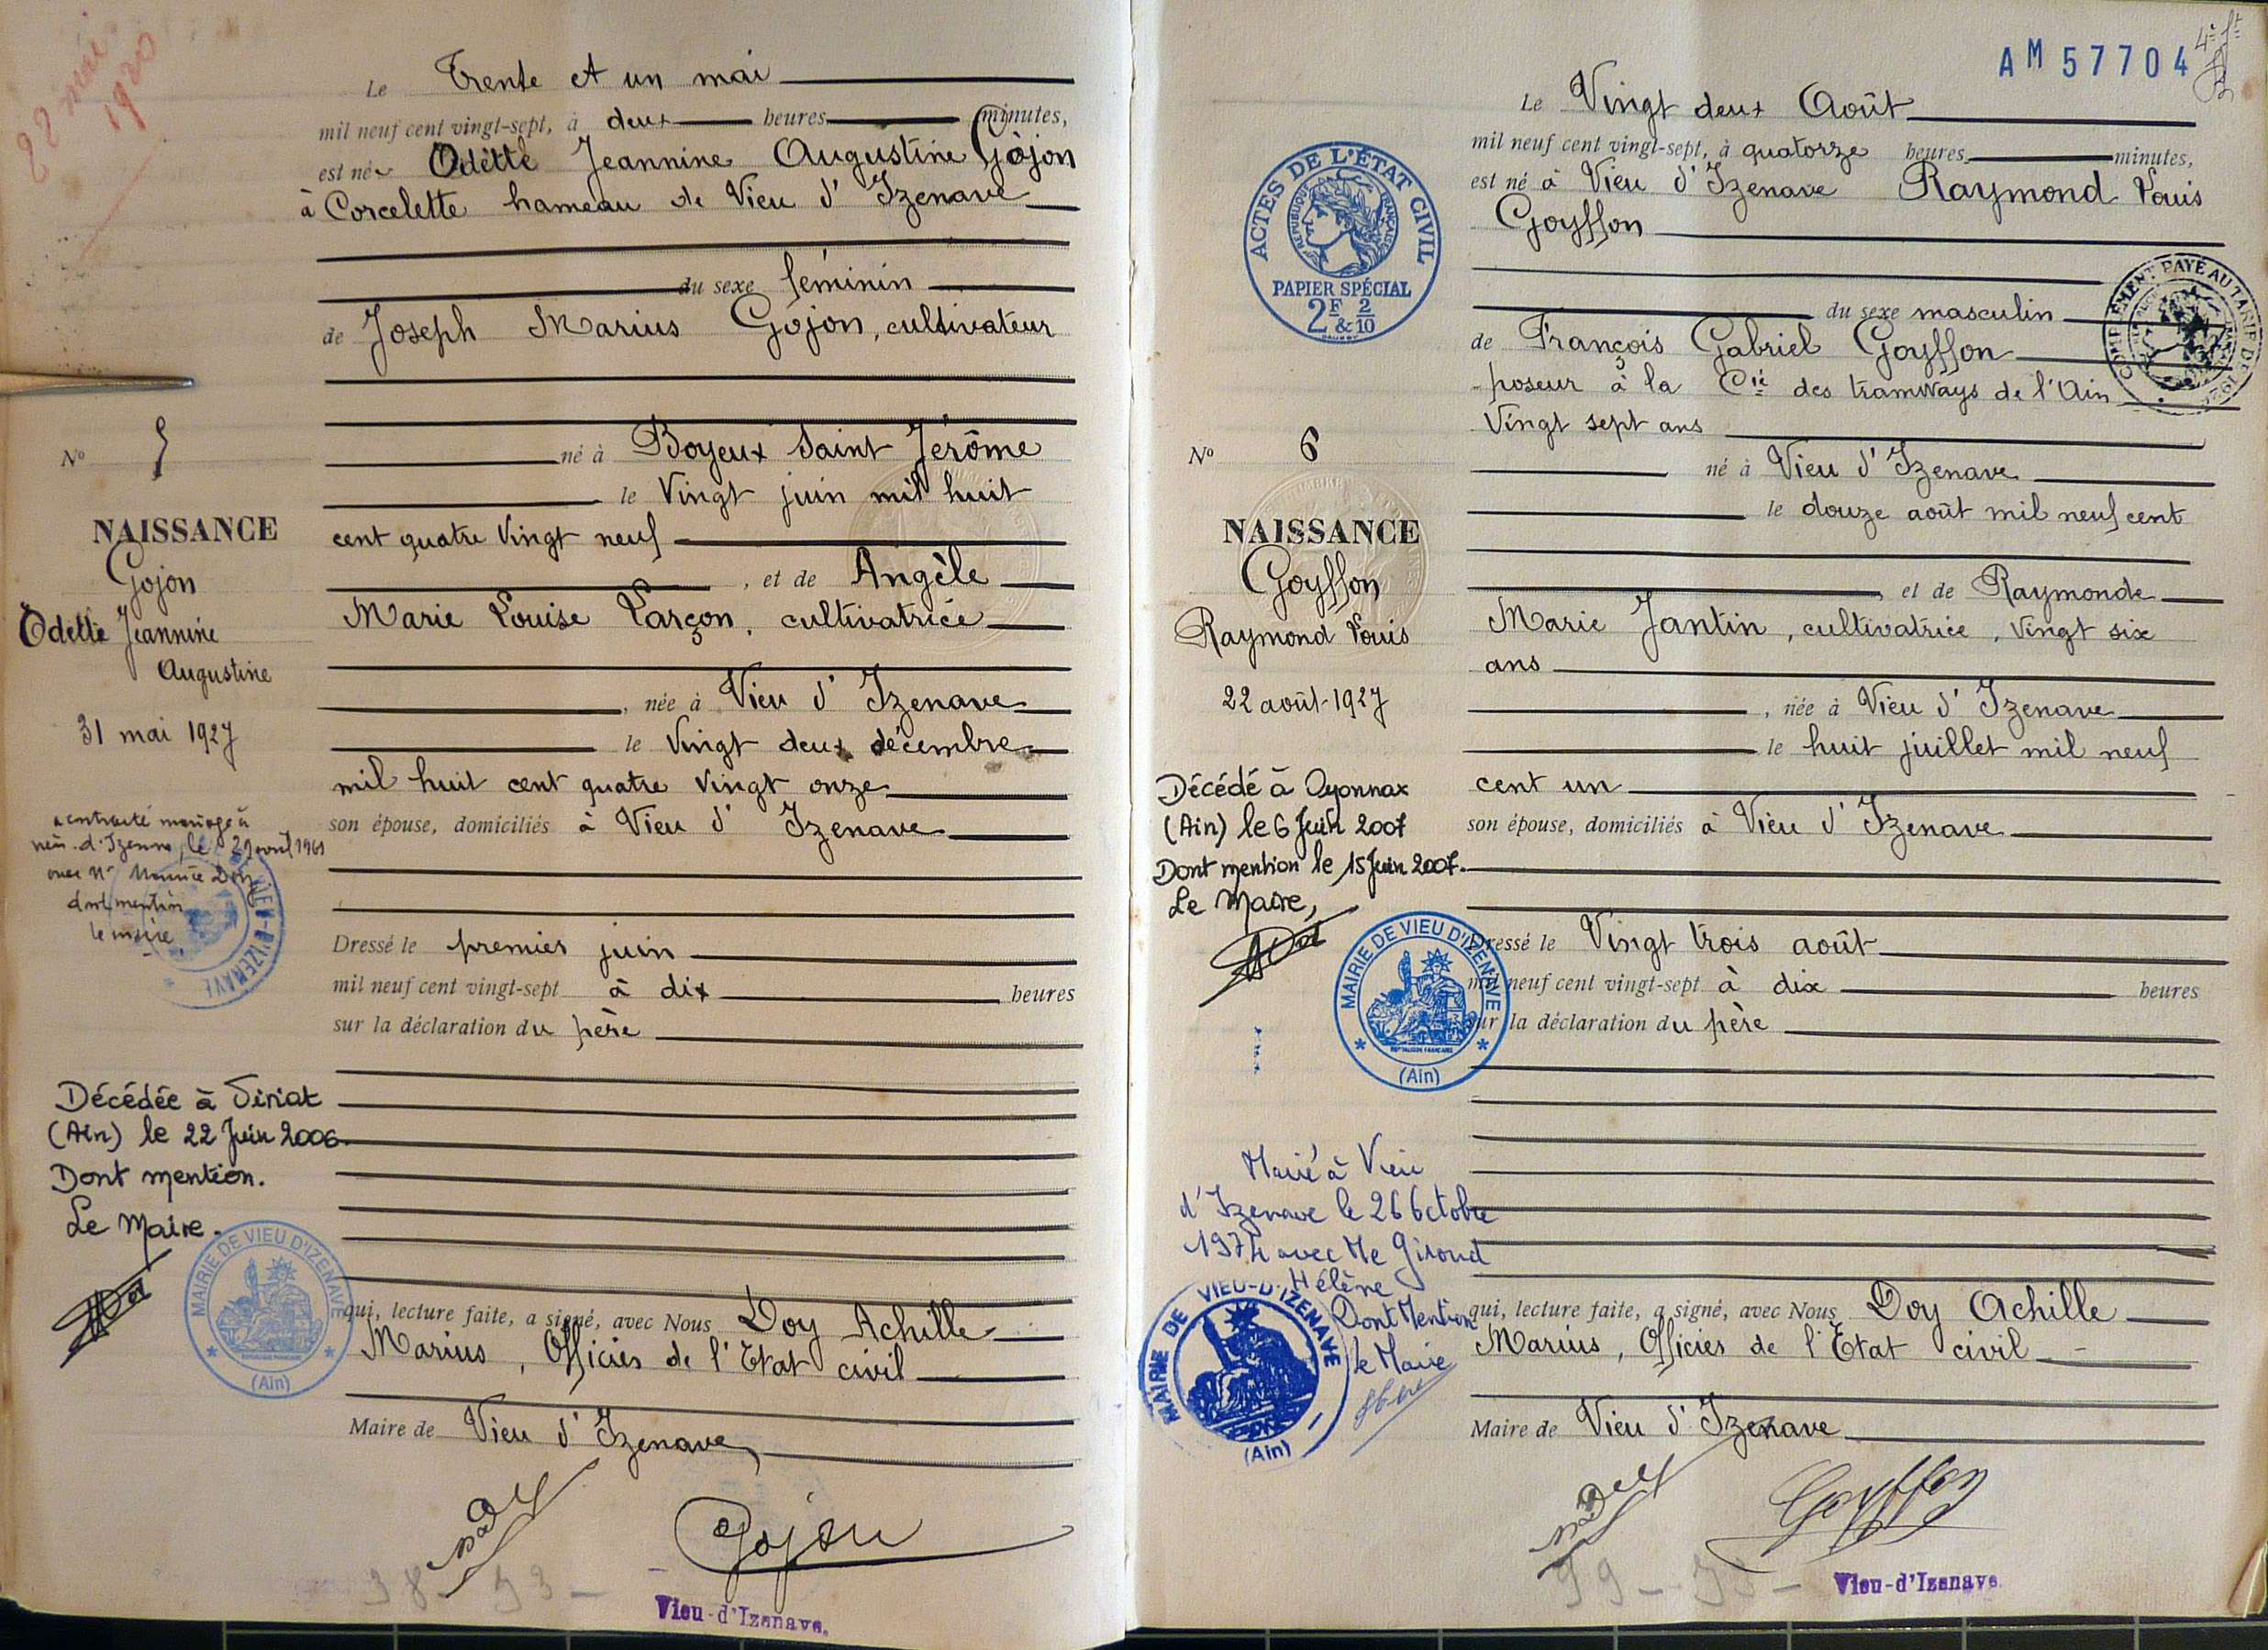 22 mai
1920
Le Trente et un mai
mil neuf cent vingt-sept, à deux heures minutes,
est née Odette Jeannine Augustine Gojon
à Corcelette hameau de Vieu d'Izenave
du sexe féminin
de Joseph Marius Gojon, cultivateur
né à Boyeux Saint Jérôme
le Vingt juin mil huit
cent quatre Vingt neuf
, et de Angèle
Marie Louise Larçon, cultivatrice
, née à Vieu d'Izenave
le Vingt deux décembre
mil huit cent quatre Vingt onze
son épouse, domiciliés à Vieu d'Izenave
Dressé le premier juin
mil neuf cent vingt-sept à dix heures
sur la déclaration du père
qui, lecture faite, a signé, avec Nous Doy Achille
Marius, Officier de l'Etat civil
Maire de Vieu d'Izenave
Gojon
Vieu-d'Izenave.
Nº 5
NAISSANCE
Gojon
Odette Jeannine
Augustine
31 mai 1927
a contracté mariage à
d'Izenave, le 29 avril 1961
avec Mr Maurice
dont mention
le maire
VIEU-D'IZENAVE
Décédée à Viriat
(Ain) le 22 Juin 2006.
Dont mention.
Le Maire.
MAIRIE DE VIEU D'IZENAVE
RÉPUBLIQUE FRANÇAISE
(Ain)
AM 57704
Le Vingt deux Août
mil neuf cent vingt-sept, à quatorze heures minutes,
est né à Vieu d'Izenave Raymond Louis
Goyffon
du sexe masculin
de François Gabriel Goyffon
poseur à la Cie des tramways de l'Ain
Vingt sept ans
né à Vieu d'Izenave
le douze août mil neuf cent
, et de Raymonde
Marie Jantin, cultivatrice, Vingt six
ans
, née à Vieu d'Izenave
le huit juillet mil neuf
cent un
son épouse, domiciliés à Vieu d'Izenave
Dressé le Vingt trois août
mil neuf cent vingt-sept à dix heures
sur la déclaration du père
qui, lecture faite, a signé, avec Nous Doy Achille
Marius, Officier de l'Etat civil
Maire de Vieu d'Izenave
Goyffon
Vieu-d'Izenave.
ACTES DE L'ÉTAT CIVIL
RÉPUBLIQUE FRANÇAISE
PAPIER SPÉCIAL
2F & 2/10
COMPLÉMENT PAYÉ AU TARIF DE
Nº 6
NAISSANCE
Goyffon
Raymond Louis
22 août 1927
Décédé à Oyonnax
(Ain) le 6 Juin 2007
Dont mention le 15 Juin 2007.
Le Maire,
MAIRIE DE VIEU D'IZENAVE
RÉPUBLIQUE FRANÇAISE
(Ain)
Marié à Vieu
d'Izenave le 26 Octobre
1974 avec Me Giroud
Hélène
Dont Mention
Le Maire
MAIRIE DE VIEU-D'IZENAVE
(Ain)